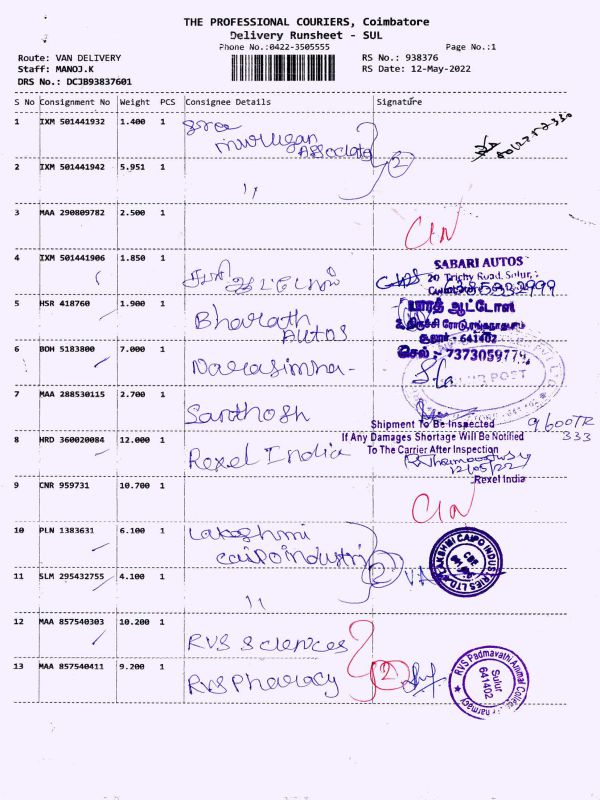 THE PROFESSIONAL COURIERS, Coimbatore
Delivery Runsheet - SUL
Phone No.:0422-3505555
Page No.:1
Route: VAN DELIVERY
RS No.: 938376
Staff: MANOJ.K
RS Date: 12-May-2022
DRS No.: DCJB93837601
S No Consignment No Weight PCS Consignee Details Signature
1 IXM 501441932 1.400 1 Sree
Murugan
Associate 2
2 IXM 501441942 5.951 1 "
3 MAA 290809782 2.500 1
4 IXM 501441906 1.850 1 சபரி ஆட்டோஸ்
SABARI AUTOS
20 Trichy Road, Sulur,
5 HSR 418760 1.900 1 Bharath
Autos
பாரத் ஆட்டோஸ்
சூலூர் - 641402
செல் :- 7373059774
6 BOH 5183800 7.000 1 Narasimha-
7 MAA 288530115 2.700 1 Santhosh
8 HRD 360020084 12.000 1 Rexel India
Shipment To Be Inspected
If Any Damages Shortage Will Be Notified
To The Carrier After Inspection
12/05/22
Rexel India
9600TR
333
9 CNR 959731 10.700 1
10 PLN 1383631 6.100 1 Lakshmi
Caipo industri 2
LAKSHMI CAIPO INDUSTRIES LTD
CBE
11 SLM 295432755 4.100 1 "
12 MAA 857540303 10.200 1 RVS Sciences
13 MAA 857540411 9.200 1 RVS Pharacy 2
RVS Padmavathi Ammal College
Sulur
641402